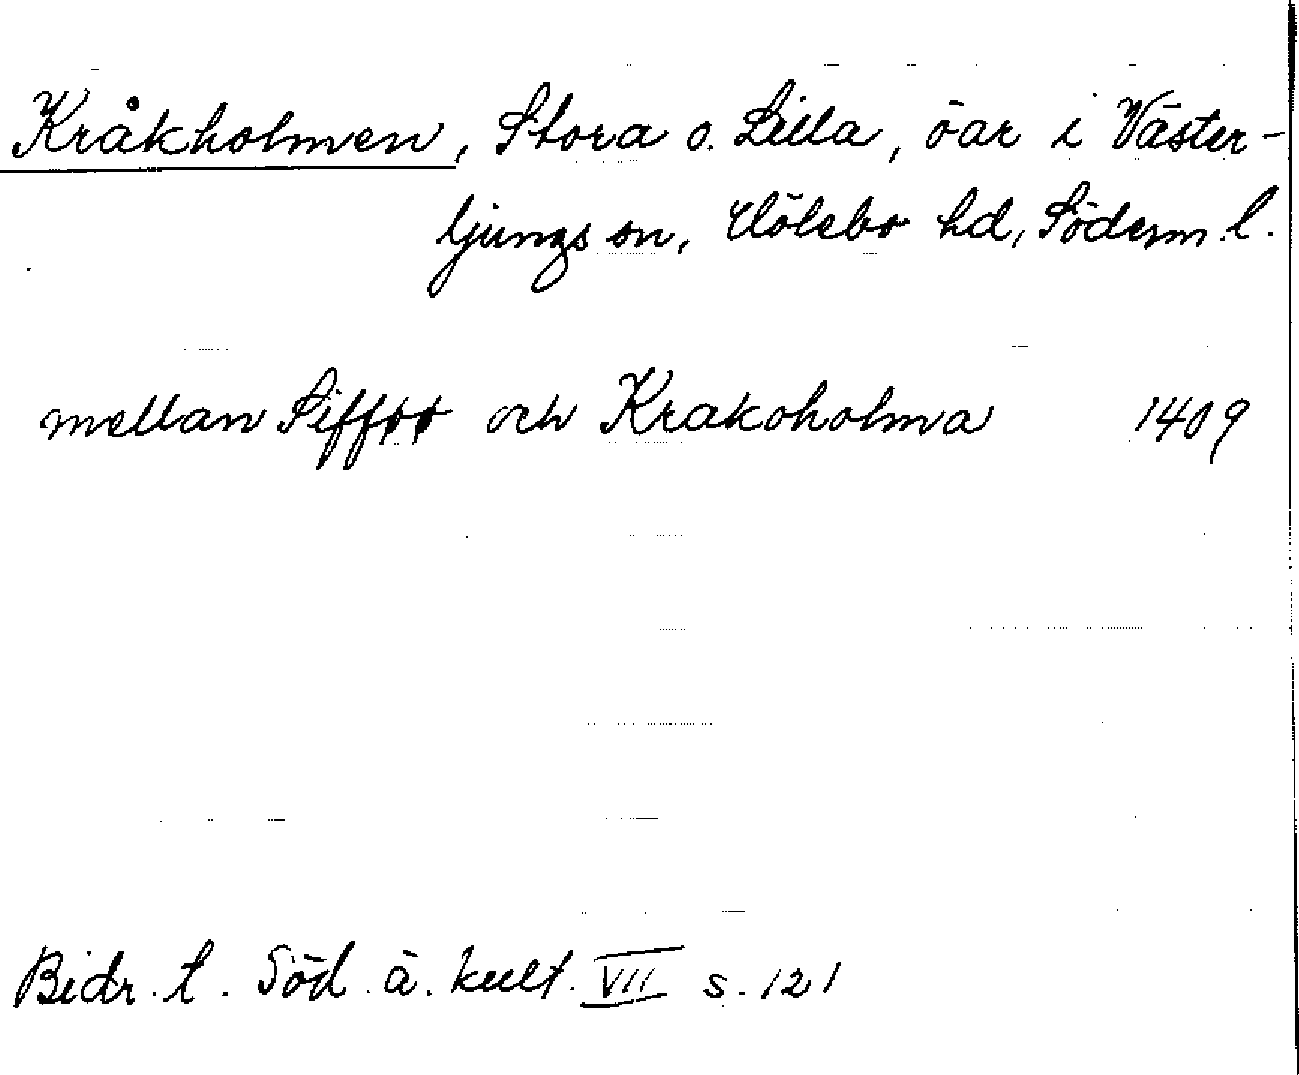 Kråkholmen, Stora o. Lilla, öar i Väster-
ljungs sn, Hölebo hd, Söderm. l.
mellan Sifføø och Krakoholma 1409
Bidr. t. Söd. ä. kult. VII s. 121